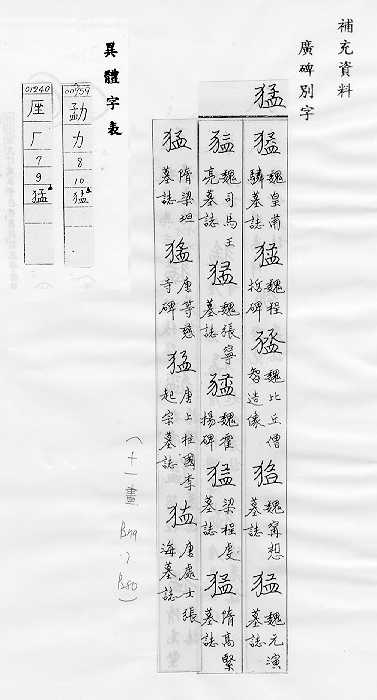 補充資料
廣碑別字
猛
猛 魏皇甫驎墓誌
猛 魏程哲碑
魏比丘僧智造像
魏甯想墓誌
猛 魏元演墓誌
魏司馬王亮墓誌
猛 魏張寧墓誌
猛 魏霍揚碑
猛 梁程虔墓誌
猛 隋高緊墓誌
猛 隋梁坦墓誌
猛 唐等慈寺碑
猛 唐上柱國李起宗墓誌
唐處士張海墓誌
(十一畫
異體字表
00959
力
8
10
猛
01240
厂
7
9
猛